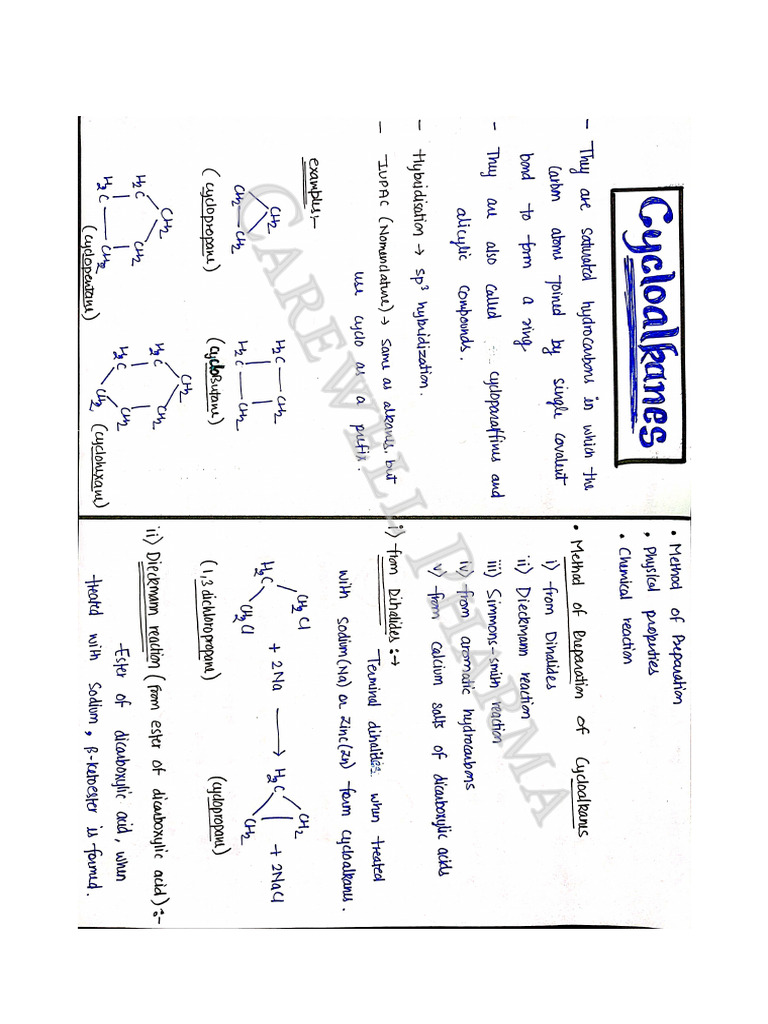 Cycloalkanes
- They are saturated hydrocarbons in which the
carbon atoms joined by single covalent
bond to form a ring.
- They are also called cycloparaffines and
alicylic compounds.
- Hybridisation → sp³ hybridization.
- IUPAC (Nomenclature) → Same as alkanes, but
use cyclo as a prefix.
examples:-
CH2
CH2—CH2
(cyclopropane)
H2C—CH2
H2C—CH2
(cycloButane)
CH2
H2C CH2
H2C—CH2
(cyclopentane)
CH2
H2C CH2
H2C CH2
CH2
(cyclohexane)
• Method of Preparation
• Physical properties
• Chemical reaction
• Method of Preparation of Cycloalkanes
i) from Dihalides
ii) Dieckmann reaction
iii) Simmons-smith reaction
iv) from aromatic hydrocarbons
v) from calcium salts of dicarboxylic acids
i) from Dihalides :→
Terminal dihalides when treated
with Sodium(Na) or Zinc(Zn) form cycloalkanes.
CH2Cl CH2
H2C + 2Na → H2C + 2NaCl
CH2Cl CH2
(1,3 dichloropropane) (cyclopropane)
ii) Dieckmann reaction (from ester of dicarboxylic acid) :-
-Ester of dicarboxylic acid, when
treated with Sodium, β-ketoester is formed.
CAREWELL PHARMA